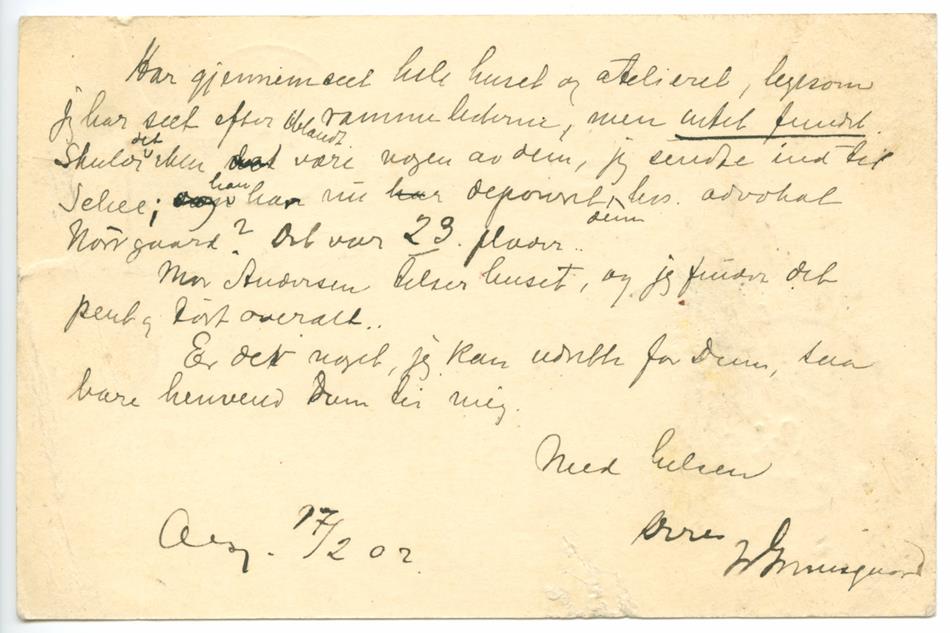 Har gjennemseet hele huset og atelieret, ligesom
jeg har seet efter iblandt rammelederne, men intet fundet.
Skulde det ikke være nogen av dem, jeg sendte ind til
Schee; han har nu deponeret dem hos. advokat
Nörrgaard? Det var 23. plader..
Mor Andersen tilser huset, og jeg finder det
pent og tört overalt..
Er det noget, jeg kan udrette for Dem, saa
bare henvend Dem til mig.
Med hilsen
Deres
Aasg. 17/2 02